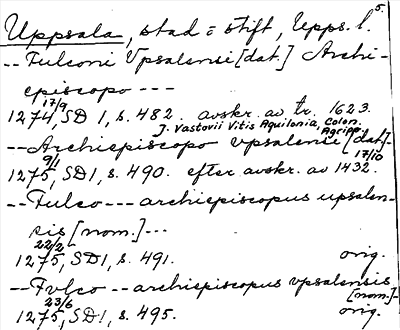 5.
Uppsala, stad o stift, Upps. l.
-- Fulconi Vpsalensi [dat.] Archi-
episcopo ---
1274 17/9, SD 1, s. 482. avskr. av tr. 1623.
J. Vastovii Vitis Aquilonia, Colon. Agripp.
-- Archiepiscopo vpsalensi [dat.]
1275 9/1, SD 1, s. 490. efter avskr. av 1432. 17/10
-- Fulco --- archiepiscopus upsalen-
sis [nom.] ---
1275 22/2, SD 1, s. 491. orig.
-- Fvlco -- archiepiscopus vpsalensis [nom.] -
1275 23/6, SD 1, s. 495. orig.